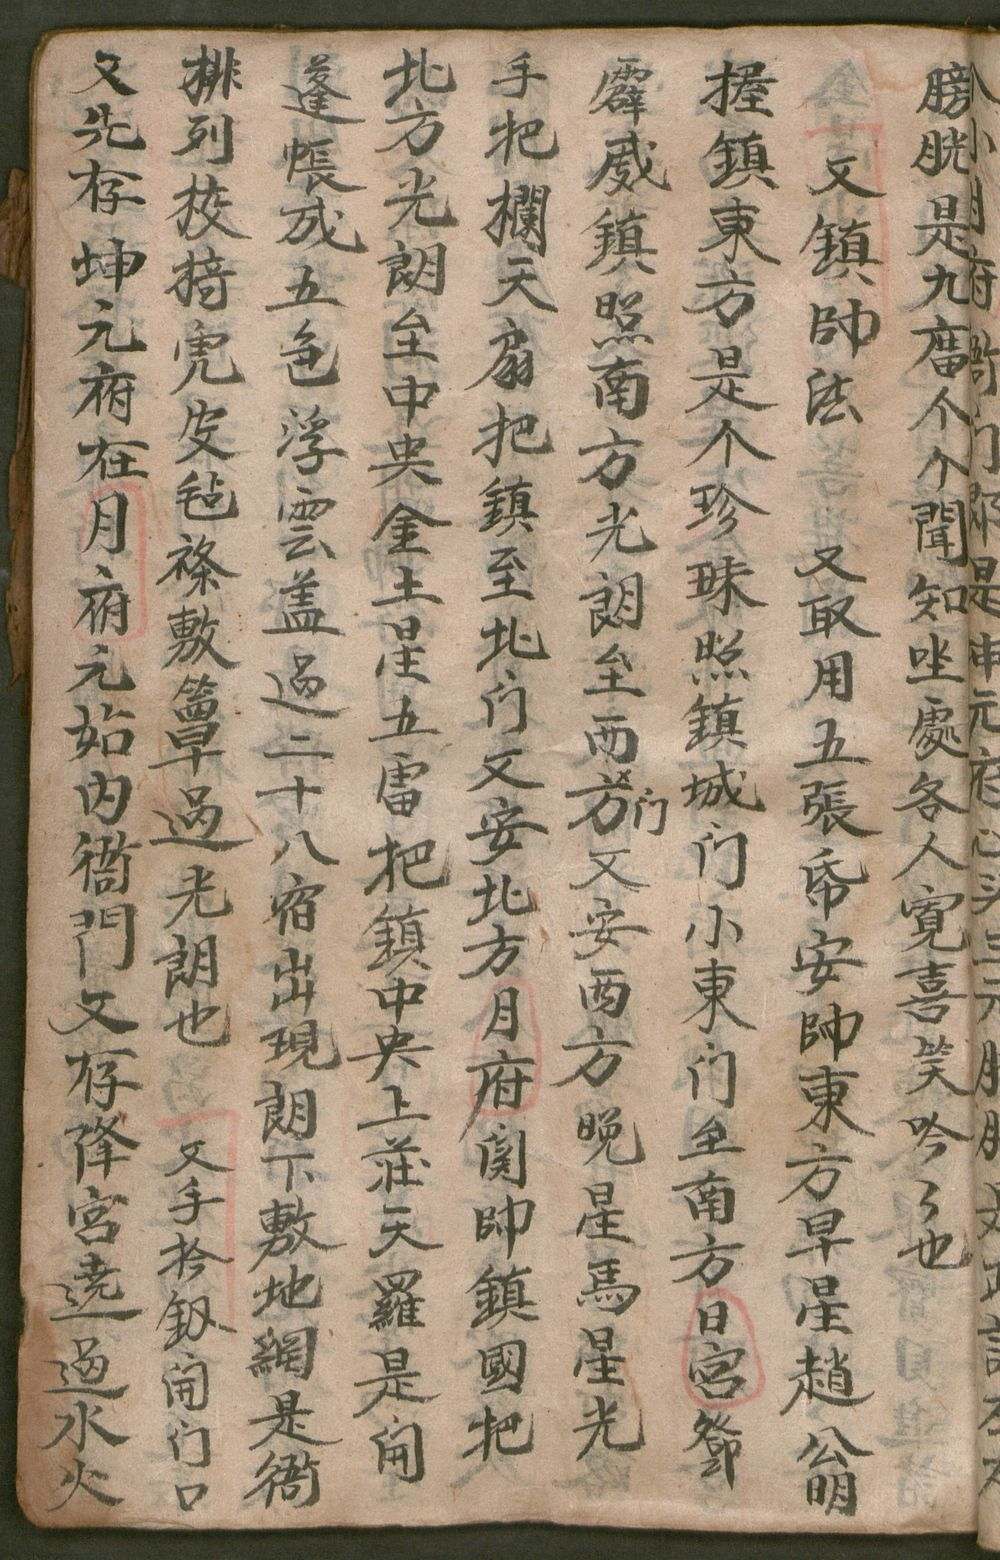 膀胱是九廇个个聞知坐處各人寬喜笑吟々也
又鎮帥法 又取用五張帋安帥東方早星趙公明
握鎮東方是个珍珠照鎮城门小東门至南方日宮鄧
霹威鎮照南方光朗至西门又安西方晚星馬星光
手把欄天扇把鎮至北门又安北方月府関帥鎮國把
北方光朗至中央金土星五雷把鎮中央上莊天羅是開
蓬帳成五色浮雲盖過二十八宿出現朗下敷地網是衙
排列校椅虎皮毡條敷簟過光朗也 又手扲釼開门口
又先存坤元府在月府元始内衙門又存降宮遶過水火